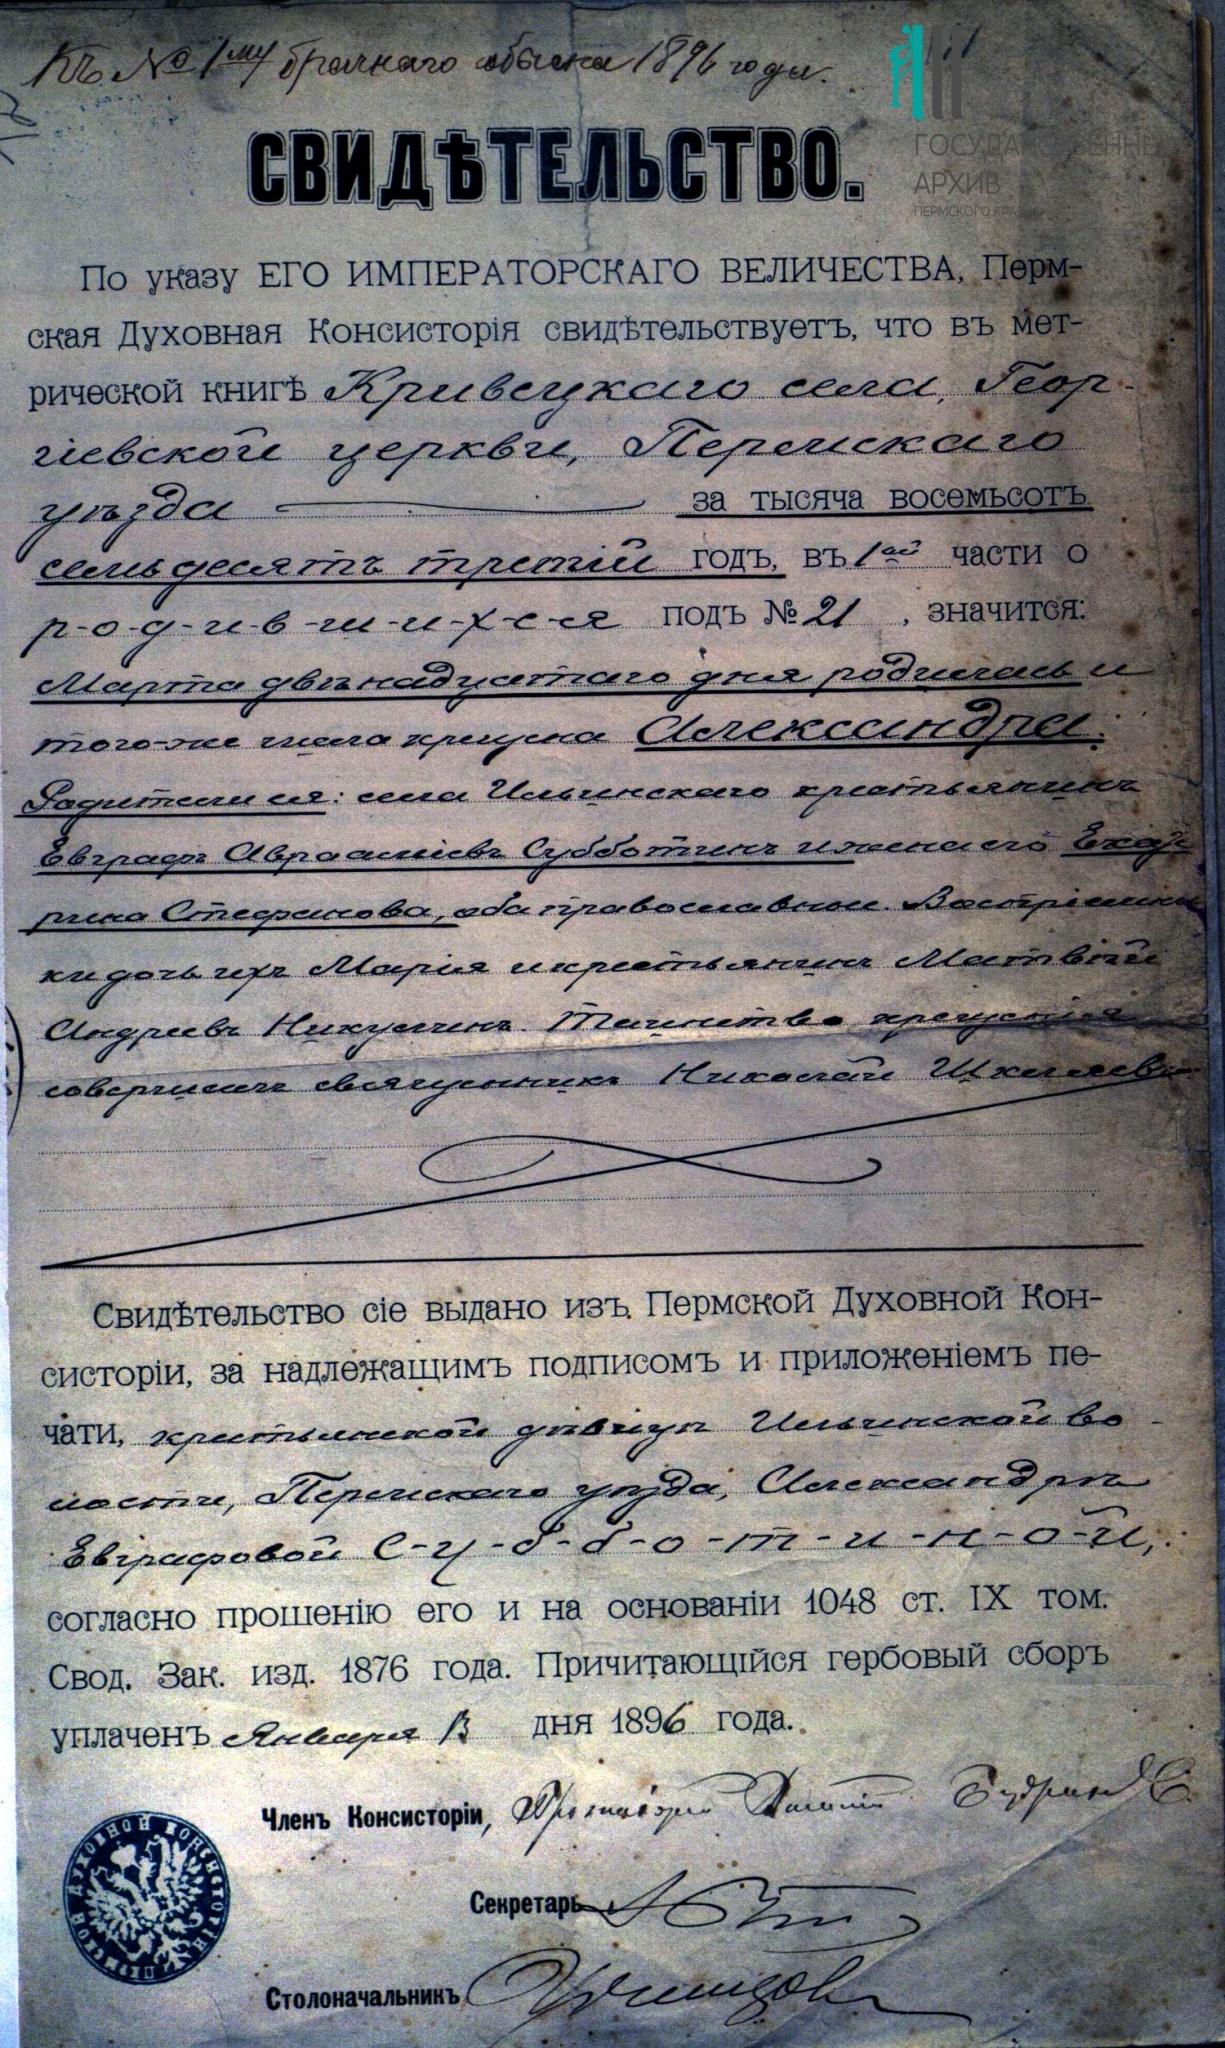 Къ № 1му брачнаго обыска 1896 года.
ГОСУДАРСТВЕННЫ
АРХИВ
ПЕРМСКОГО КРАЯ
СВИДѢТЕЛЬСТВО.
По указу ЕГО ИМПЕРАТОРСКАГО ВЕЛИЧЕСТВА, Перм-
ская Духовная Консисторія свидѣтельствуетъ, что въ мет-
рической книгѣ Кривецкаго села, Геор-
гіевской церкви, Пермскаго
уѣзда за тысяча восемьсотъ
семьдесятъ третій годъ, въ 1ой части о
р-о-д-и-в-ш-и-х-с-я подъ № 21, значится:
Марта двѣнадцатаго дня родилась и
того-же числа крещена Александра.
Родители ея: села Ильинскаго крестьянинъ
Евграфъ Авраамiевъ Субботинъ и жена его Екате
рина Стефанова, оба православные. Воспріемни
ки дочь ихъ Марія и крестьянинъ Матвѣй
Андреевъ Никулинъ. Таинство крещенія
совершилъ священникъ Николай Шкляевъ
Свидѣтельство сіе выдано изъ Пермской Духовной Кон-
систоріи, за надлежащимъ подписомъ и приложеніемъ пе-
чати, крестьянской дѣвицѣ Ильинской во-
лости, Пермскаго уѣзда, Александрѣ
Евграфовой С-у-б-б-о-т-и-н-о-й,
согласно прошенію его и на основаніи 1048 ст. IX том.
Свод. Зак. изд. 1876 года. Причитающійся гербовый сборъ
уплаченъ Января 13 дня 1896 года.
Членъ Консисторіи, Протоіерей Будринъ
Секретарь
Столоначальникъ
ПЕРМСКОЙ ДУХОВНОЙ КОНСИСТОРІИ